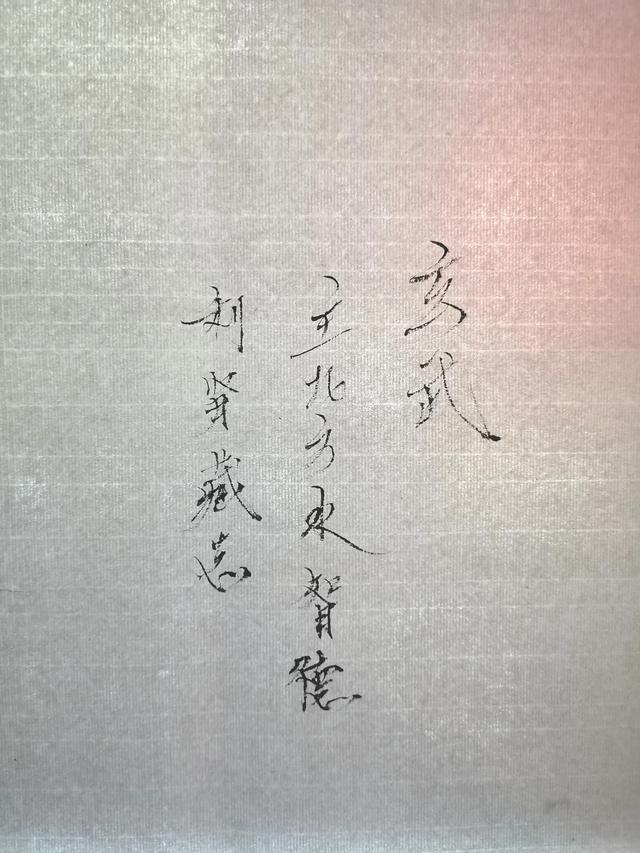 玄武
主北方水智德
利牮藏志